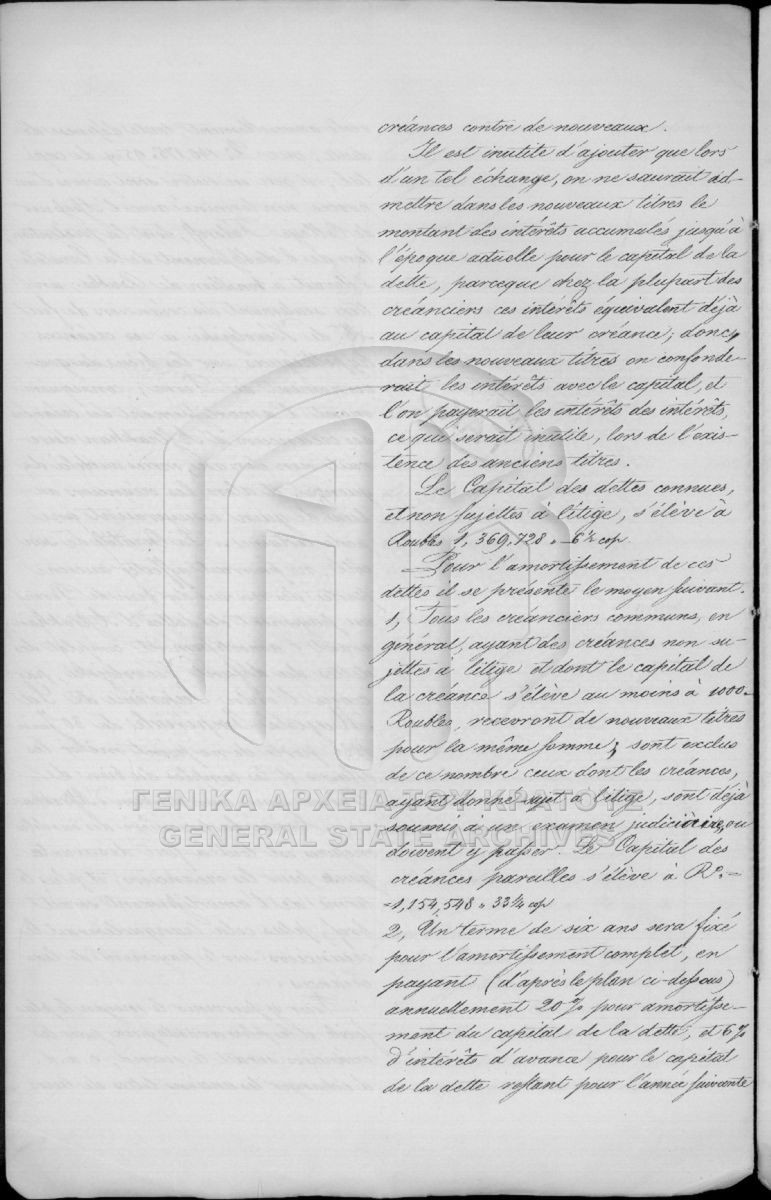 créances contre de nouveaux.
Il est inutile d'ajouter que lors
d'un tel échange, on ne saurait ad-
mettre dans les nouveaux titres le
montant des intérêts accumulés jusqu'à
l'époque actuelle pour le capital de la
dette, parceque chez la plupart des
créanciers ces intérêts équivalent déjà
au capital de leur créance; donc,
dans les nouveaux titres on confonde-
rait les intérêts avec le capital, et
l'on payerait les intérêts des intérêts,
ce que serait inutile, lors de l'exis-
tence des anciens titres.
Le Capital des dettes connues,
et non sujettes à litige, s'élève à
Roubls 1,369,728 " 6½ cop
Pour l'amortissement de ces
dettes il se présente le moyen suivant.
1, Tous les créanciers communs, en
général, ayant des créances non su-
jettes à litige et dont le capital de
la créance s'élève au moins à 1000-
Roubles, recevront de nouveaux titres
pour la même somme; sont exclus
de ce nombre ceux dont les créances,
ayant donné sujet à litige, sont déjà
soumis à un examen judiciaire, ou
doivent y passer. Le Capital des
créances pareilles s'élève à R.=
=1,154,548 " 33¼ cop
2, Un terme de six ans sera fixé
pour l'amortissement complet, en
payant (d'après le plan ci-dessous)
annuellement 20% pour amortisse-
ment du capital de la dette, et 6%
d'intérêts d'avance pour le capital
de la dette restant pour l'année suivante
ΓΕΝΙΚΑ ΑΡΧΕΙΑ ΤΟΥ ΚΡΑΤΟΥΣ
GENERAL STATE ARCHIVES